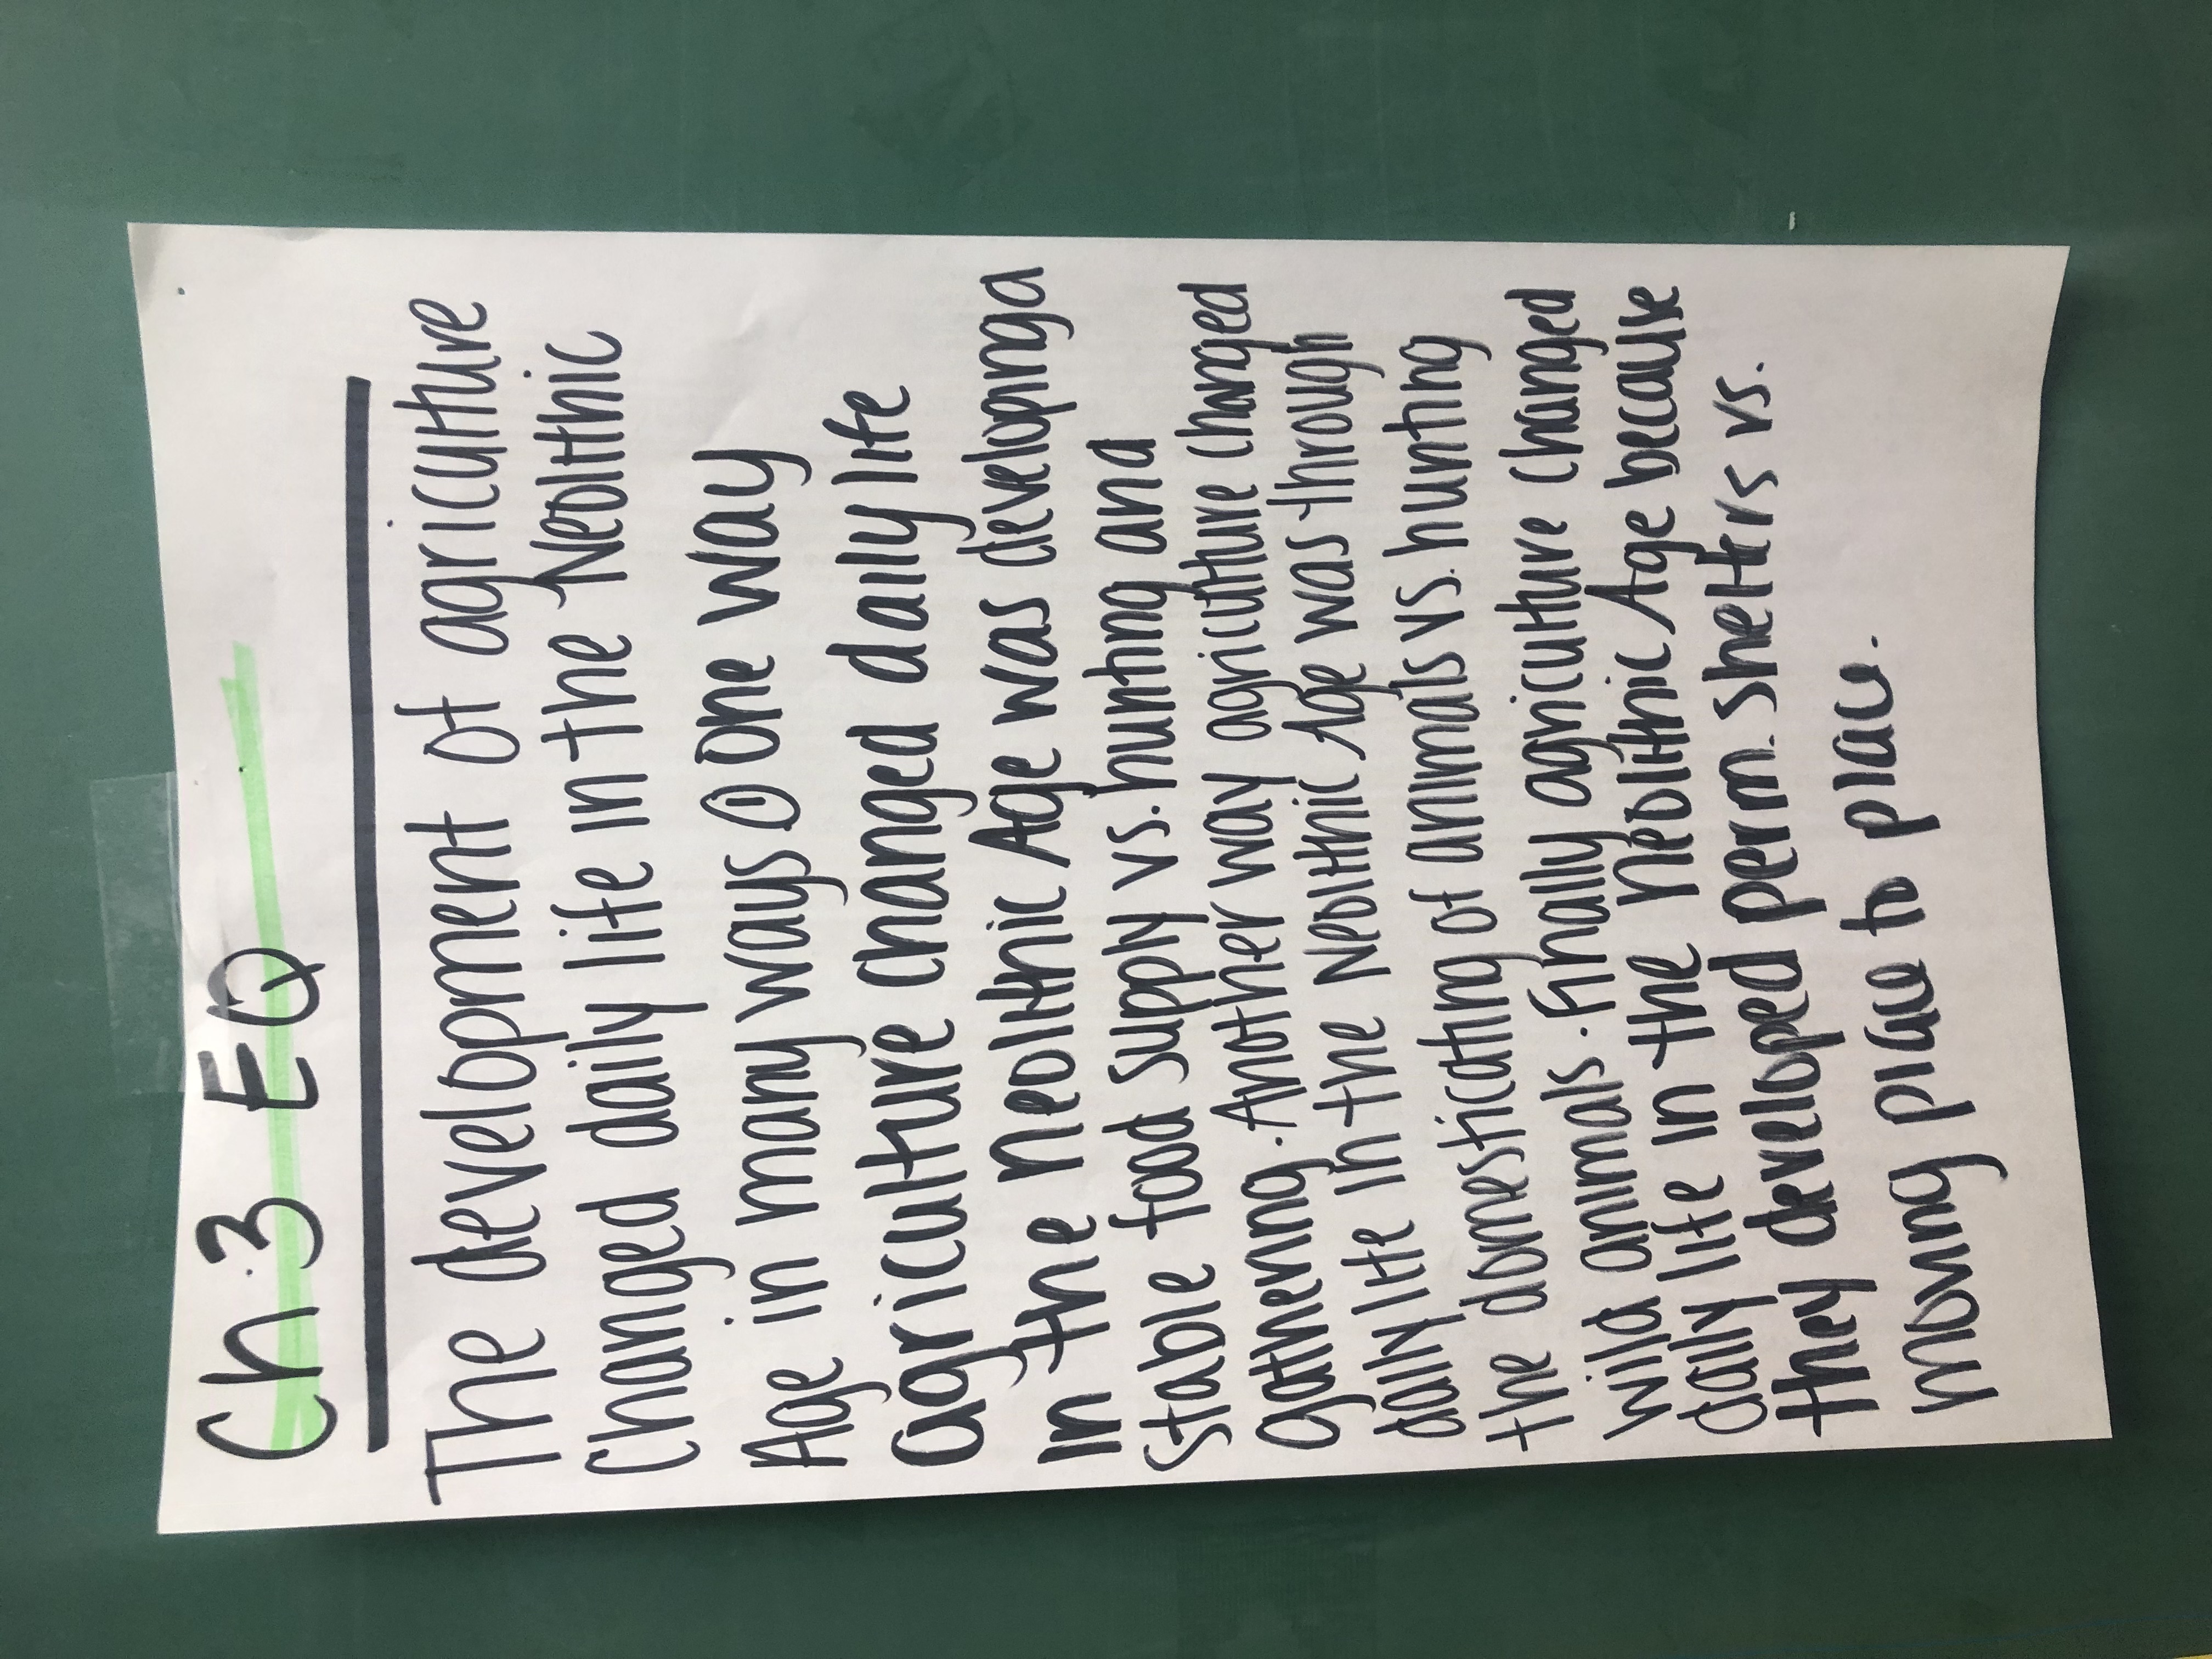 Ch.3 EQ
The development of agriculture
changed daily life in the Neolithic
Age in many ways ① one way
agriculture changed daily life
in the neolithic Age was developing a
stable food supply vs. hunting and
gathering. Another way agriculture changed
daily life in the Neolithic Age was through
the domesticating of animals vs. hunting
wild animals. Finally agriculture changed
daily life in the neolithic Age because
they developed perm. shelters vs.
moving place to place.